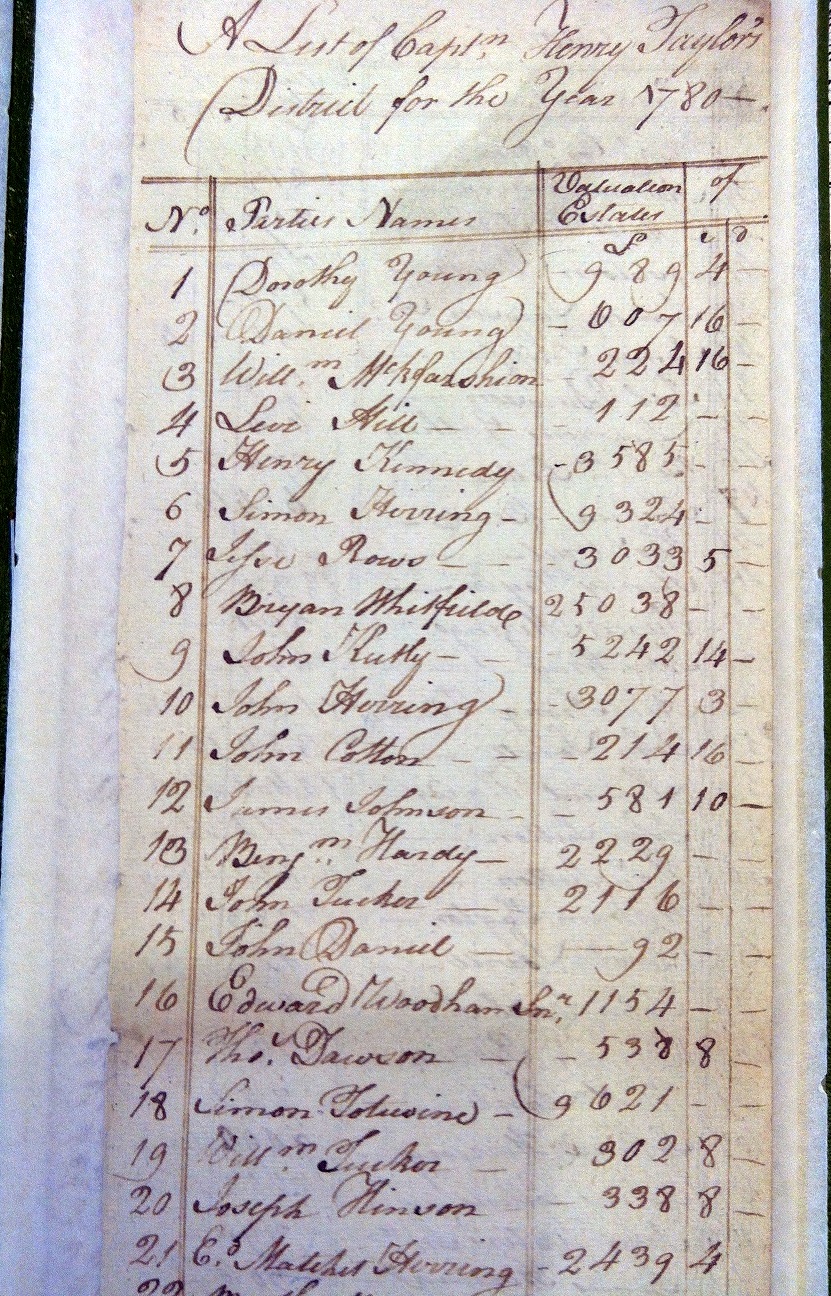 A List of Capt.n Henry Taylor's
District for the Year 1780 —.
N.o Parties Names Valuation of Estates
£ s d
1 Dorothy Young 989 4 —
2 Daniel Young — 607 16 —
3 Will.m McKfashion 224 16 —
4 Levi Hill — — — 112 — —
5 Henry Kennedy — 3585 — —
6 Simon Herring — 9324 — —
7 Jesse Rows — — — 3033 5 —
8 Bryan Whitfield 25038 — —
9 John Kutly — — — 5242 14 —
10 John Herring — — 3077 3 —
11 John Cotton — — — 214 16 —
12 James Johnson — — 581 10 —
13 Benj.n Hardy — 2229 — —
14 John Tucker — 2116 — —
15 John Daniel — — 92 — —
16 Edward Woodham Sn.r 1154 — —
17 Tho.s Dawson — — 538 8 —
18 Simon — 9621 — —
19 Will.m Tucker — 302 8 —
20 Joseph Hinson 338 8 —
21 E.s Matchet Herring — 2439 4 —
22